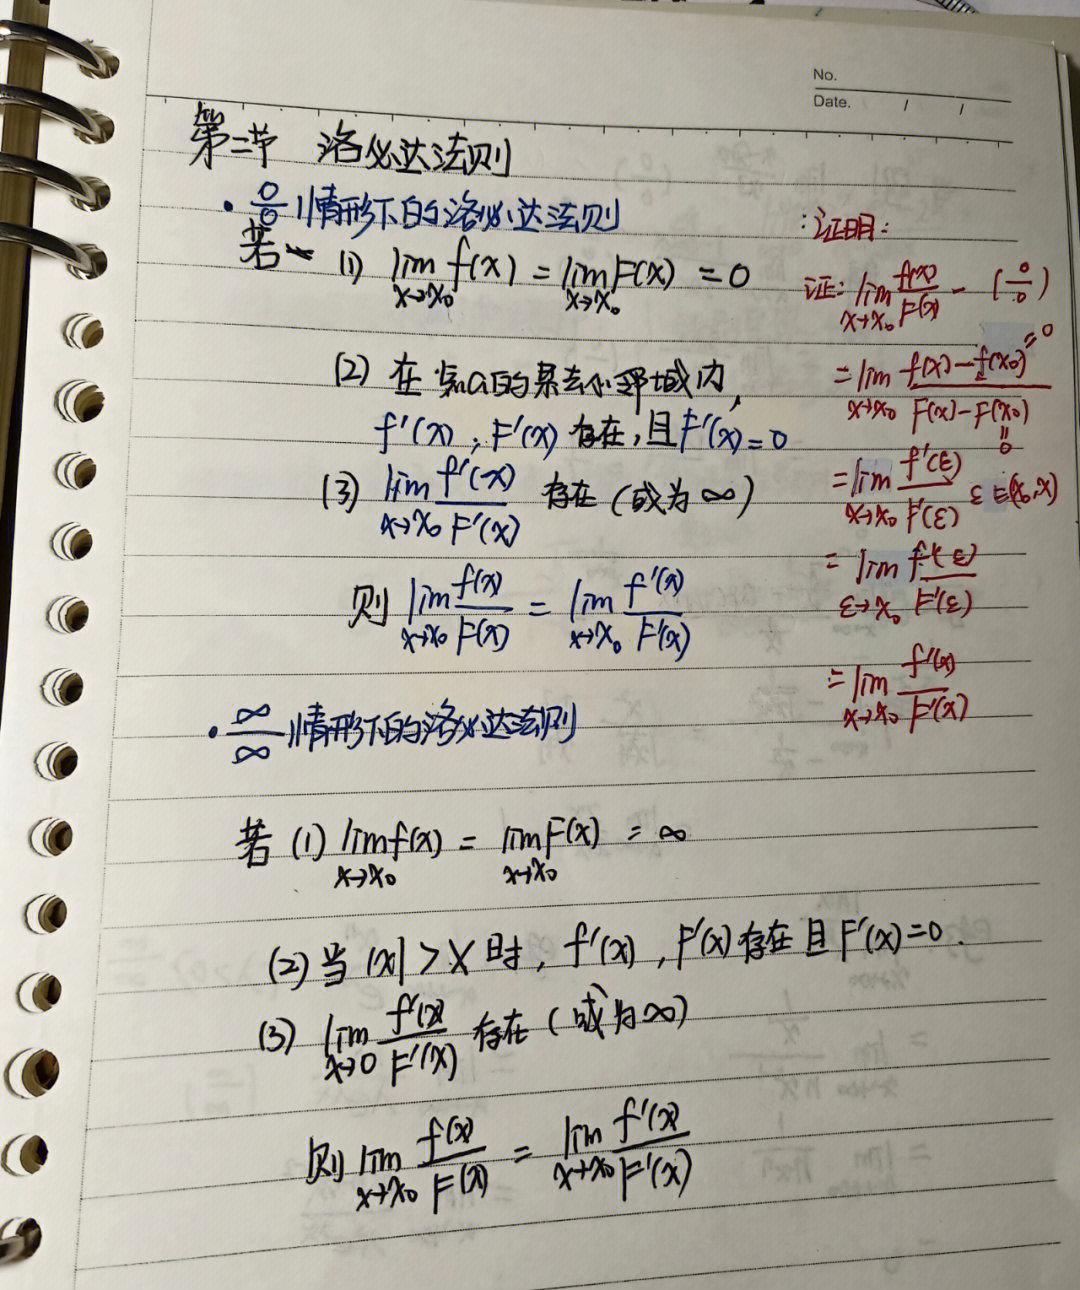 No.
Date. / /
第二节 洛必达法则
· 0/0 情形下的洛必达法则
若 (1) lim x→x₀ f(x) = lim x→x₀ F(x) = 0
(2) 在点a的某去心邻域内,
f'(x), F'(x) 存在,且F'(x)=0
(3) lim x→x₀ f'(x)/F'(x) 存在(或为∞)
则 lim x→x₀ f(x)/F(x) = lim x→x₀ f'(x)/F'(x)
:证明:
证: lim x→x₀ f(x)/F(x) - (0/0)
= lim x→x₀ f(x)-f(x₀)/F(x)-F(x₀) =0 =0
= lim x→x₀ f'(ε)/F'(ε) ε∈(x₀,x)
= lim ε→x₀ f'(ε)/F'(ε)
= lim x→x₀ f'(x)/F'(x)
· ∞/∞ 情形下的洛必达法则
若 (1) lim x→x₀ f(x) = lim x→x₀ F(x) = ∞
(2) 当 |x| > X 时, f'(x), F'(x) 存在且F'(x)=0.
(3) lim x→0 f'(x)/F'(x) 存在(或为∞)
则 lim x→x₀ f(x)/F(x) = lim x→x₀ f'(x)/F'(x)